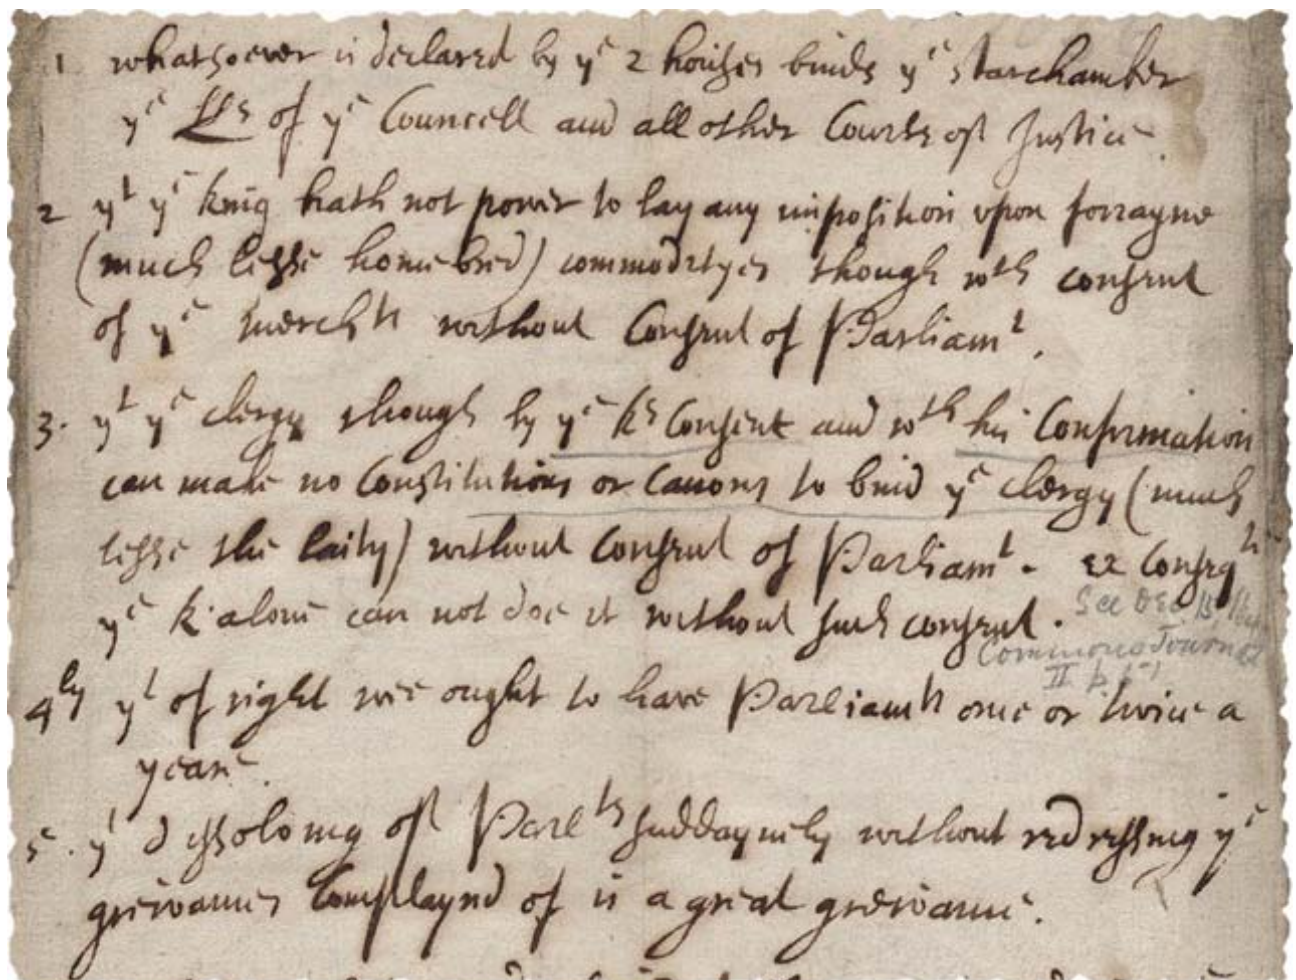 1 whatsoever is declared by ye 2 houses binds ye starchamber
ye LLs of ye Councell and all other Courts of Justice.
2 yt ye king hath not power to lay any imposition upon forrayne
(much lesse homebred) commodityes though wth consent
of ye mercht without Consent of Parliamt.
3. yt ye clergy though by ye ks Consent and wth his Confirmation
can make no Constitutions or Canons to bind ye clergy (much
lesse the laity) without Consent of Parliamt. ex Conseq
ye k alone can not doe it without such consent.
See Dec. 15
Commons Journal
II p.
4ly yt of right wee ought to have Parliamts once or twice a
yeare.
5. yt dissolving of Parlts suddaynely without redressing ye
grievances Complaynd of is a great grievance.